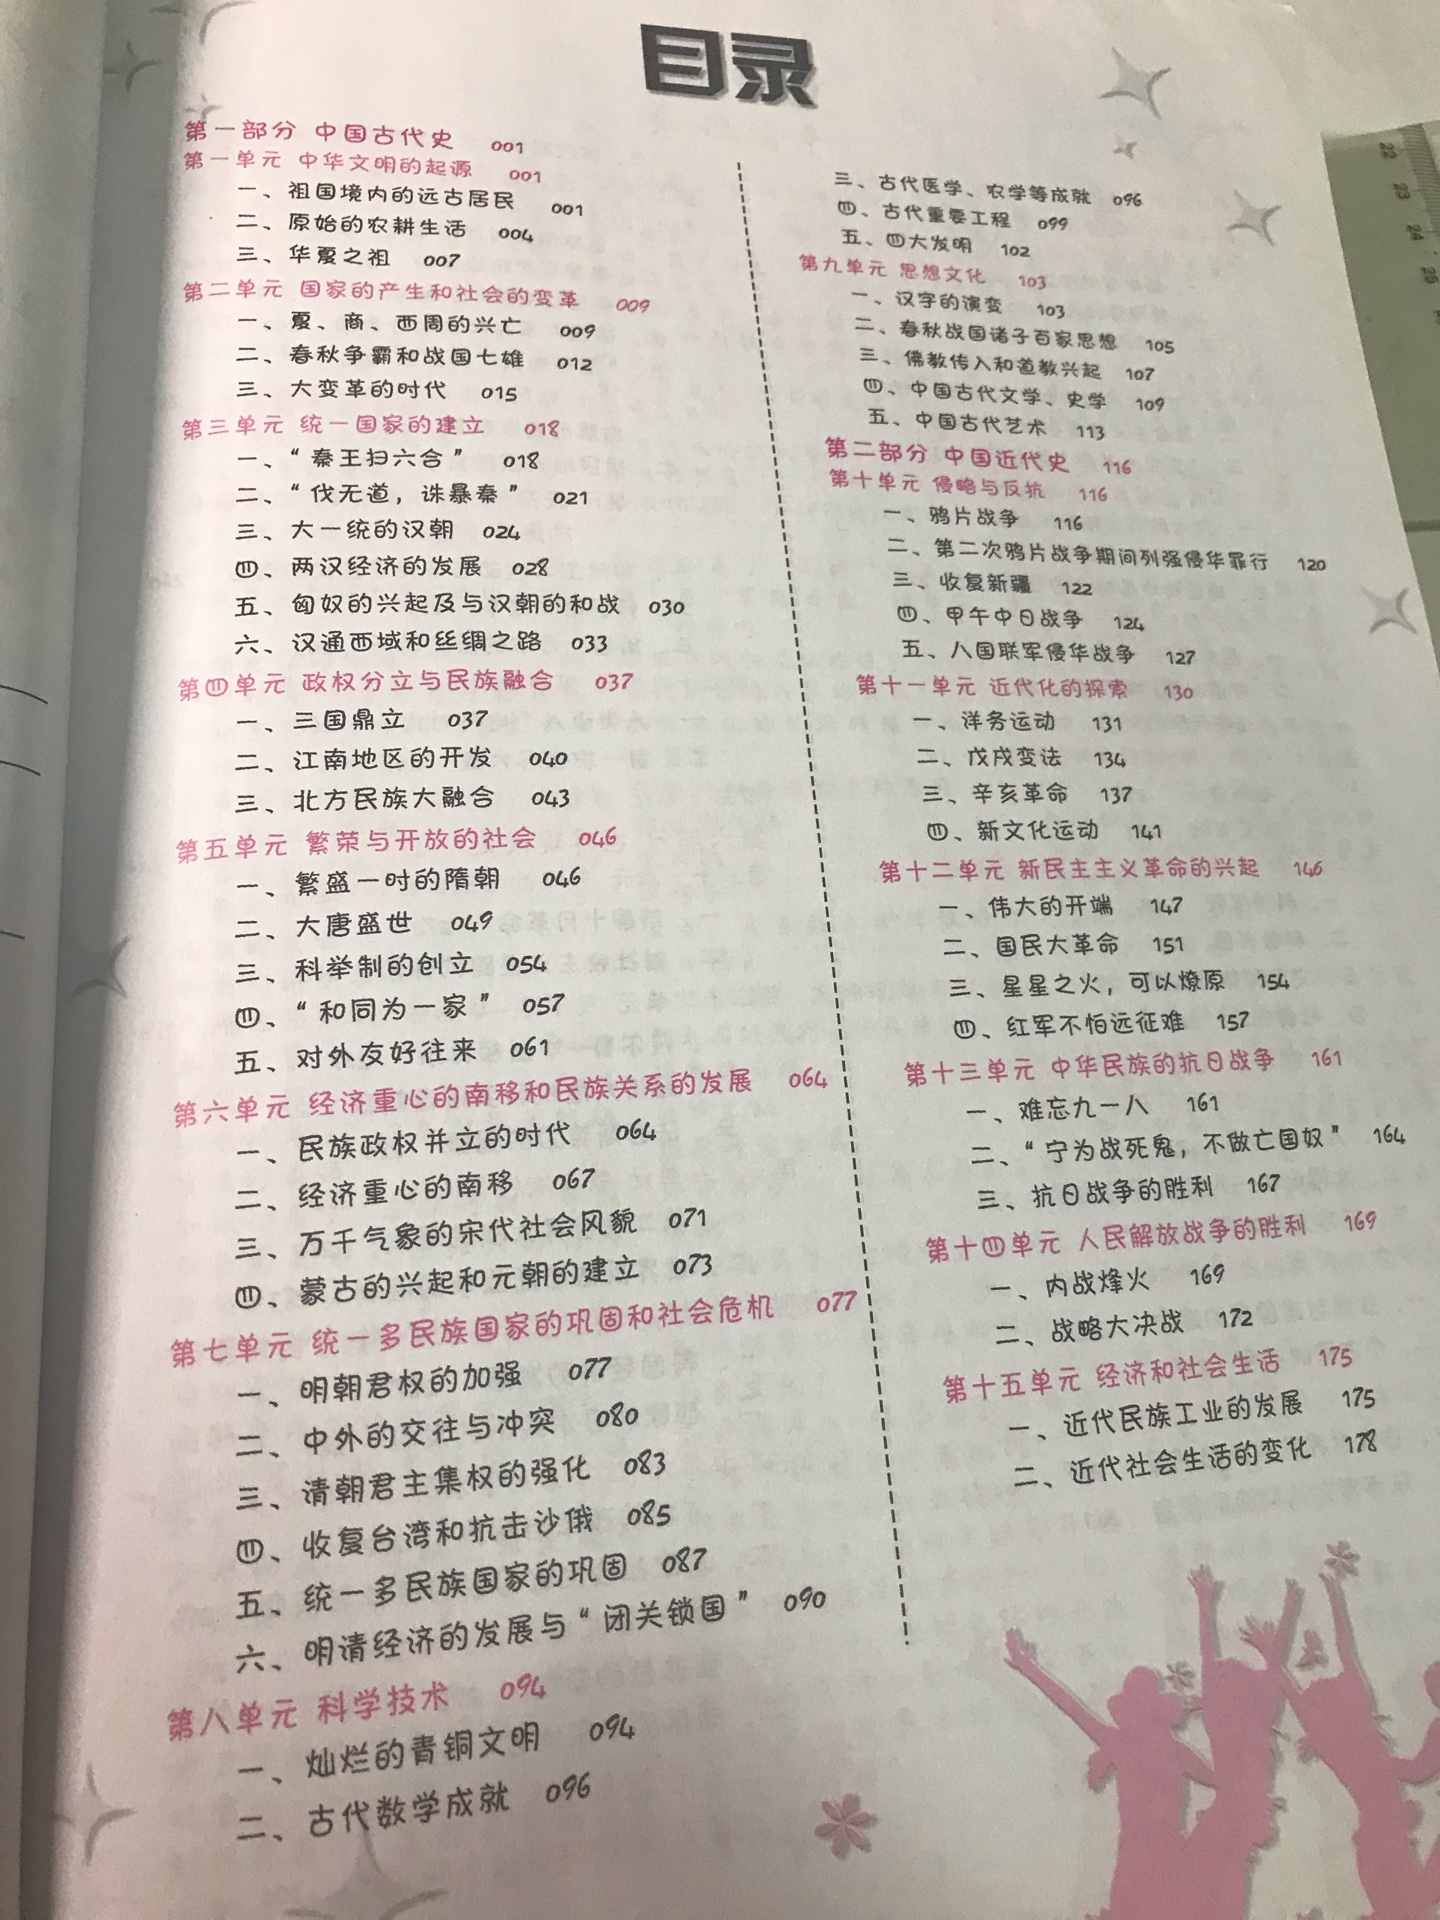 目录
第一部分 中国古代史 001
第一单元 中华文明的起源 001
一、祖国境内的远古居民 001
二、原始的农耕生活 004
三、华夏之祖 007
第二单元 国家的产生和社会的变革 009
一、夏、商、西周的兴亡 009
二、春秋争霸和战国七雄 012
三、大变革的时代 015
第三单元 统一国家的建立 018
一、“秦王扫六合” 018
二、“伐无道，诛暴秦” 021
三、大一统的汉朝 024
四、两汉经济的发展 028
五、匈奴的兴起及与汉朝的和战 030
六、汉通西域和丝绸之路 033
第四单元 政权分立与民族融合 037
一、三国鼎立 037
二、江南地区的开发 040
三、北方民族大融合 043
第五单元 繁荣与开放的社会 046
一、繁盛一时的隋朝 046
二、大唐盛世 049
三、科举制的创立 054
四、“和同为一家” 057
五、对外友好往来 061
第六单元 经济重心的南移和民族关系的发展 064
一、民族政权并立的时代 064
二、经济重心的南移 067
三、万千气象的宋代社会风貌 071
四、蒙古的兴起和元朝的建立 073
第七单元 统一多民族国家的巩固和社会危机 077
一、明朝君权的加强 077
二、中外的交往与冲突 080
三、清朝君主集权的强化 083
四、收复台湾和抗击沙俄 085
五、统一多民族国家的巩固 087
六、明清经济的发展与“闭关锁国” 090
第八单元 科学技术 094
一、灿烂的青铜文明 094
二、古代数学成就 096
三、古代医学、农学等成就 096
四、古代重要工程 099
五、四大发明 102
第九单元 思想文化 103
一、汉字的演变 103
二、春秋战国诸子百家思想 105
三、佛教传入和道教兴起 107
四、中国古代文学、史学 109
五、中国古代艺术 113
第二部分 中国近代史 116
第十单元 侵略与反抗 116
一、鸦片战争 116
二、第二次鸦片战争期间列强侵华罪行 120
三、收复新疆 122
四、甲午中日战争 124
五、八国联军侵华战争 127
第十一单元 近代化的探索 130
一、洋务运动 131
二、戊戌变法 134
三、辛亥革命 137
四、新文化运动 141
第十二单元 新民主主义革命的兴起 146
一、伟大的开端 147
二、国民大革命 151
三、星星之火，可以燎原 154
四、红军不怕远征难 157
第十三单元 中华民族的抗日战争 161
一、难忘九一八 161
二、“宁为战死鬼，不做亡国奴” 164
三、抗日战争的胜利 167
第十四单元 人民解放战争的胜利 169
一、内战烽火 169
二、战略大决战 172
第十五单元 经济和社会生活 175
一、近代民族工业的发展 175
二、近代社会生活的变化 178
22
23
24
25